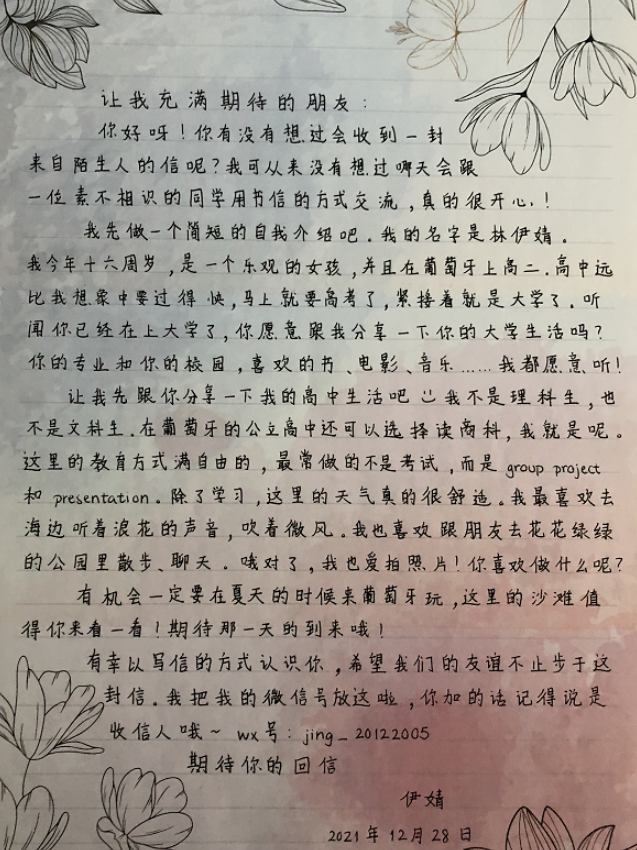 让我充满期待的朋友：
你好呀！你有没有想过会收到一封
来自陌生人的信呢？我可从来没有想过哪天会跟
一位素不相识的同学用书信的方式交流，真的很开心！
我先做一个简短的自我介绍吧。我的名字是林伊婧。
我今年十六周岁，是一个乐观的女孩，并且在葡萄牙上高二。高中远
比我想象中要过得快，马上就要高考了，紧接着就是大学了。听
闻你已经在上大学了，你愿意跟我分享一下你的大学生活吗？
你的专业和你的校园，喜欢的书、电影、音乐……我都愿意听！
让我先跟你分享一下我的高中生活吧 我不是理科生，也
不是文科生。在葡萄牙的公立高中还可以选择读商科，我就是呢。
这里的教育方式满自由的，最常做的不是考试，而是 group project
和 presentation。除了学习，这里的天气真的很舒适。我最喜欢去
海边听着浪花的声音，吹着微风。我也喜欢跟朋友去花花绿绿
的公园里散步、聊天。哦对了，我也爱拍照片！你喜欢做什么呢？
有机会一定要在夏天的时候来葡萄牙玩，这里的沙滩值
得你来看一看！期待那一天的到来哦！
有幸以写信的方式认识你，希望我们的友谊不止步于这
封信。我把我的微信号放这啦，你加的话记得说是
收信人哦～ wx号：jing_20122005
期待你的回信
伊婧
2021年12月28日